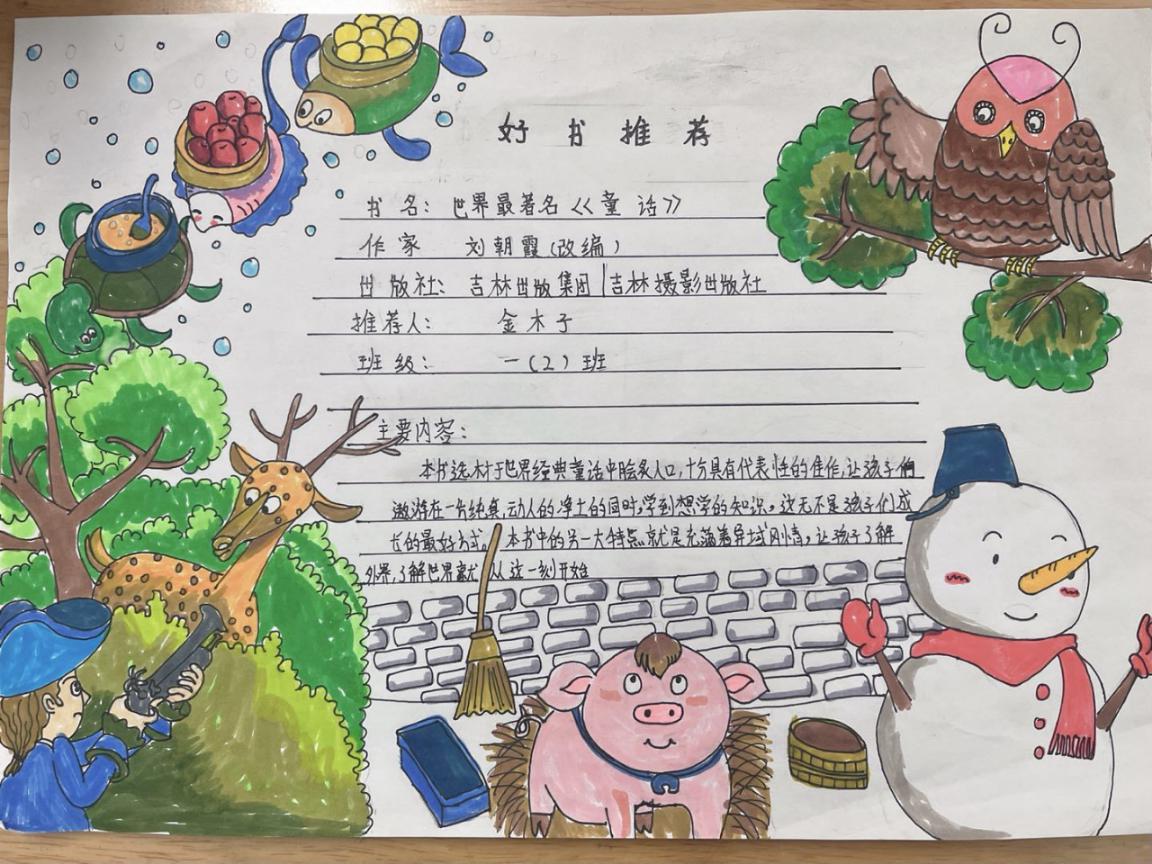 好书推荐
书名：世界最著名《童话》
作家 刘朝霞（改编）
出版社：吉林出版集团|吉林摄影出版社
推荐人： 金木子
班级： 一（2）班
主要内容：
本书选材于世界经典童话中脍炙人口，十分具有代表性的佳作，让孩子们
遨游在一份纯真，动人的净土的同时，学到想学的知识，这无不是孩子们成
长的最好方式。本书中的另一大特点就是充满着异域风情，让孩子了解
外界，了解世界 从这一刻开始